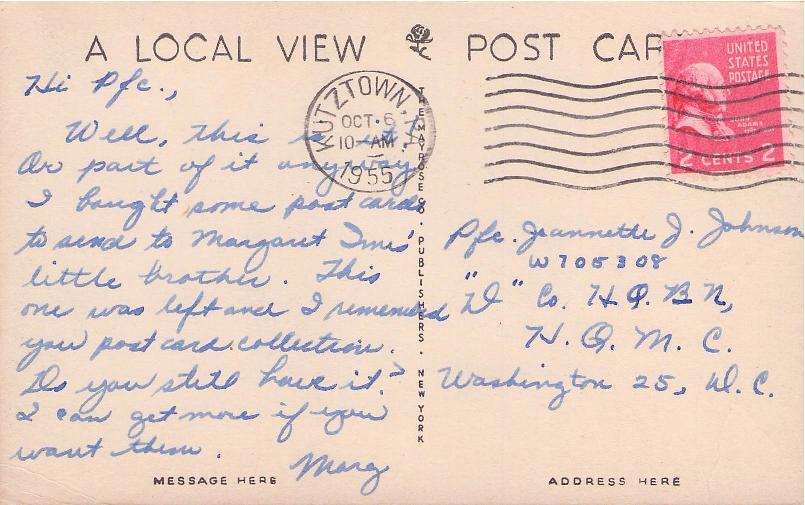 A LOCAL VIEW POST CAR
Hi Pfc.,
Well, this is it!
Or part of it anyway.
I bought some post cards
to send to Margaret
little brother. This
one was left and I rememered
your post card collection.
Do you still have it?
I can get more if you
want them.
Marg
MESSAGE HERE
THE MAYROSE CO. • PUBLISHERS • NEW YORK
KUTZTOWN, PA.
OCT 6
10 AM
1955
UNITED
STATES
POSTAGE
JOHN
ADAMS
2 CENTS 2
Pfc. Jeannette J. Johnson
W705308
"D" Co. H.Q. BN,
H. Q. M. C.
Washington 25, D. C.
ADDRESS HERE